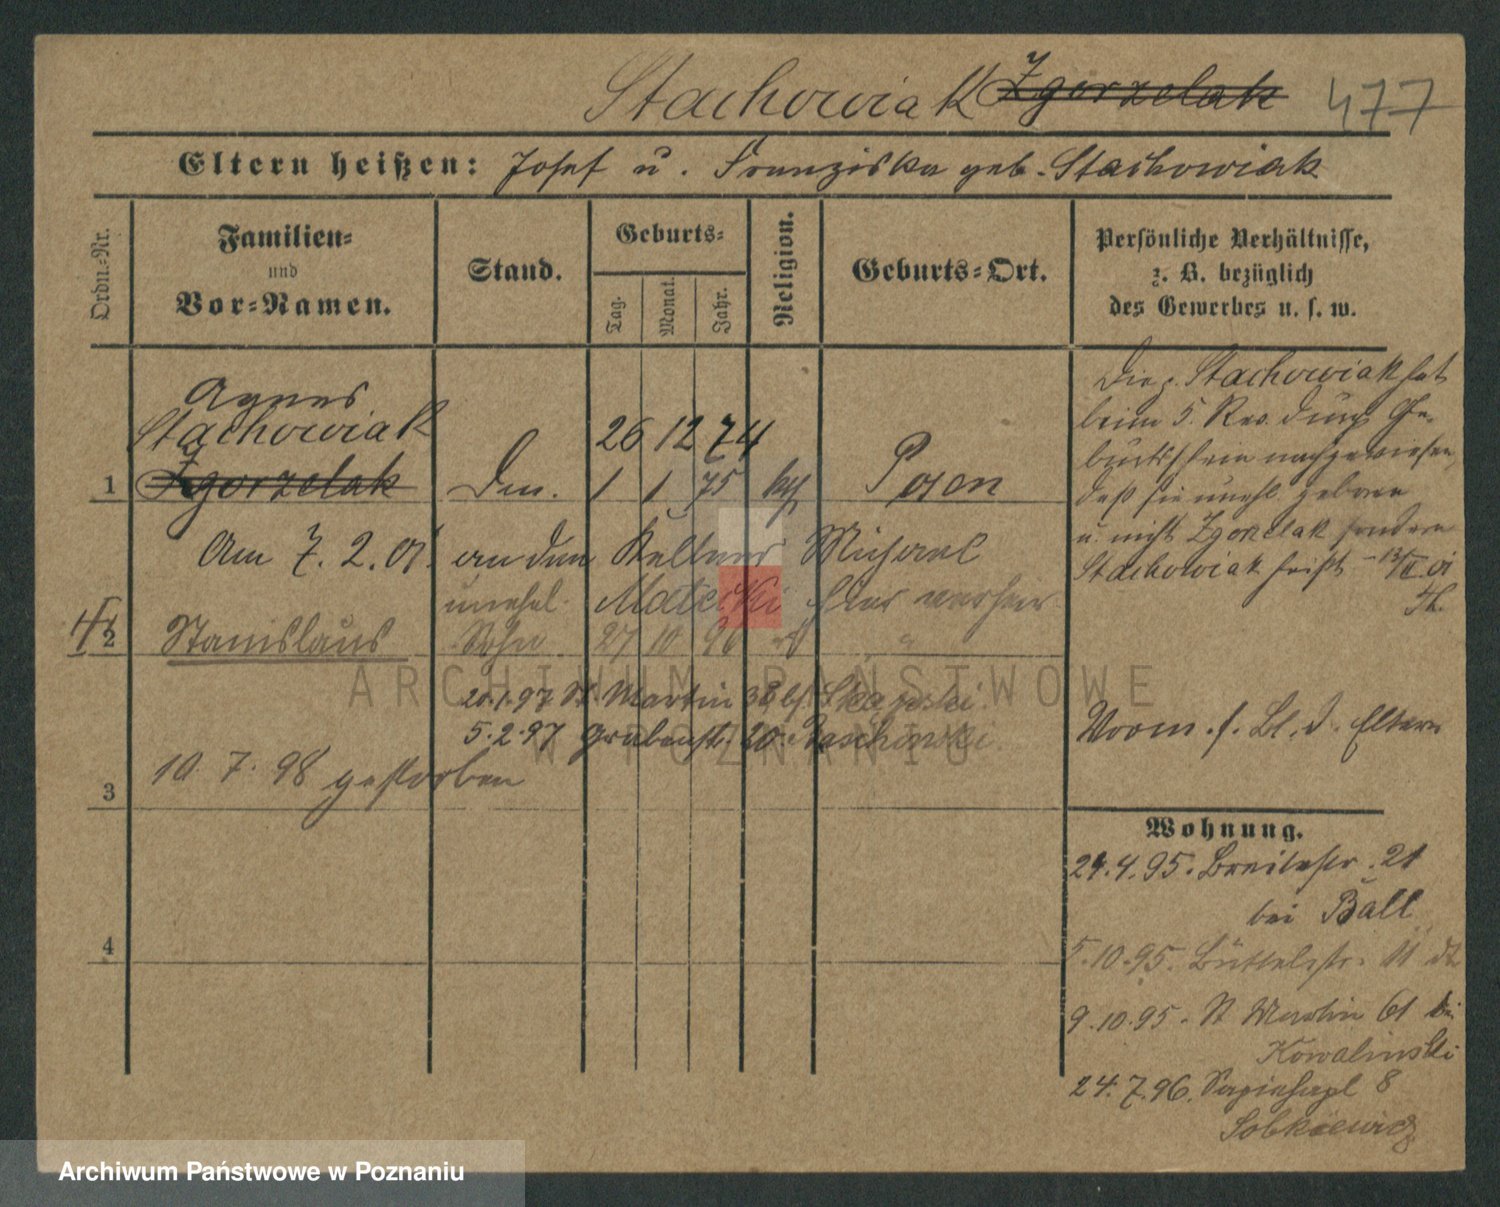 Stachowiak Zgorzelak 477
Eltern heißen: Josef u. Franziska geb. Stachowiak
Ordn.-Nr.
Familien-
und
Vor-Namen.
Stand.
Geburts-
Tag.
Monat.
Jahr.
Religion.
Geburts-Ort.
Persönliche Verhältnisse,
z. B. bezüglich
des Gewerbes u. s. w.
Agnes
Stachowiak 26 12 74
1 Zgorzelak 1 1 75 kth Posen
Die p. Stachowiak hat
beim 5. Rev. durch Ge-
burtsschein nachgewiesen,
daß sie unehl. geboren
u. nicht Zgorzelak sondern
Stachowiak heißt - 13/II. 01
Am 7. 2. 01. an den Kellner Michael
unehel. Mateski hier verheir.
2 Stanislaus Sohn 27 10 96 " "
20.1.97 St. Martin 38 bei
5.2.97 Grabenstr. 20
3 10. 7. 98 gestorben
Vorm. s. Bl. d. Eltern
4
Wohnung.
24.4.95. Breitestr. 21
bei Ball
5.10.95. Büttelstr. 11
9.10.95. St Martin 61 bei
Kowalinski
24.7.96. Sapiehapl 8
Sobkiewicz
ARCHIWUM PAŃSTWOWE
W POZNANIU
Archiwum Państwowe w Poznaniu